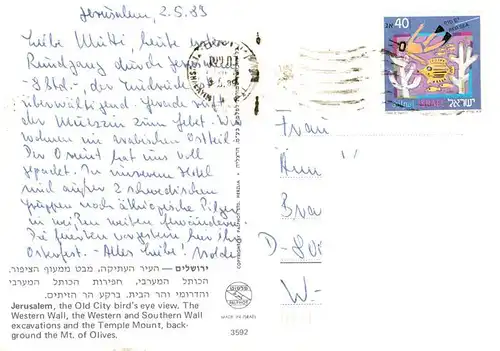 Jerusalem, 2.5.89
Liebe Mutti, heute
Rundgang durch Jerusalem
- 8 Std., der Eindrücke
überwältigend. Gerade ruft
der Muezzin zum Gebet. Wir
wohnen im arabischen Ostteil.
Der Orient hat uns voll
gepackt. In unserem Hotel
sind außer 2 schwedischen
Gruppen noch äthiopische Pilger
in weißen weiten Gewändern.
Die feierten vorgestern hier ihr
Osterfest. - Alles Liebe!
ירושלים — העיר העתיקה, מבט ממעוף הציפור.
הכותל המערבי, חפירות הכותל המערבי
והדרומי והר הבית. ברקע הר הזיתים.
Jerusalem, the Old City bird's eye view. The
Western Wall, the Western and Southern Wall
excavations and the Temple Mount, back-
ground the Mt. of Olives.
MADE IN ISRAEL
3592
40
ISRAEL ישראל
Frau
D-
W-